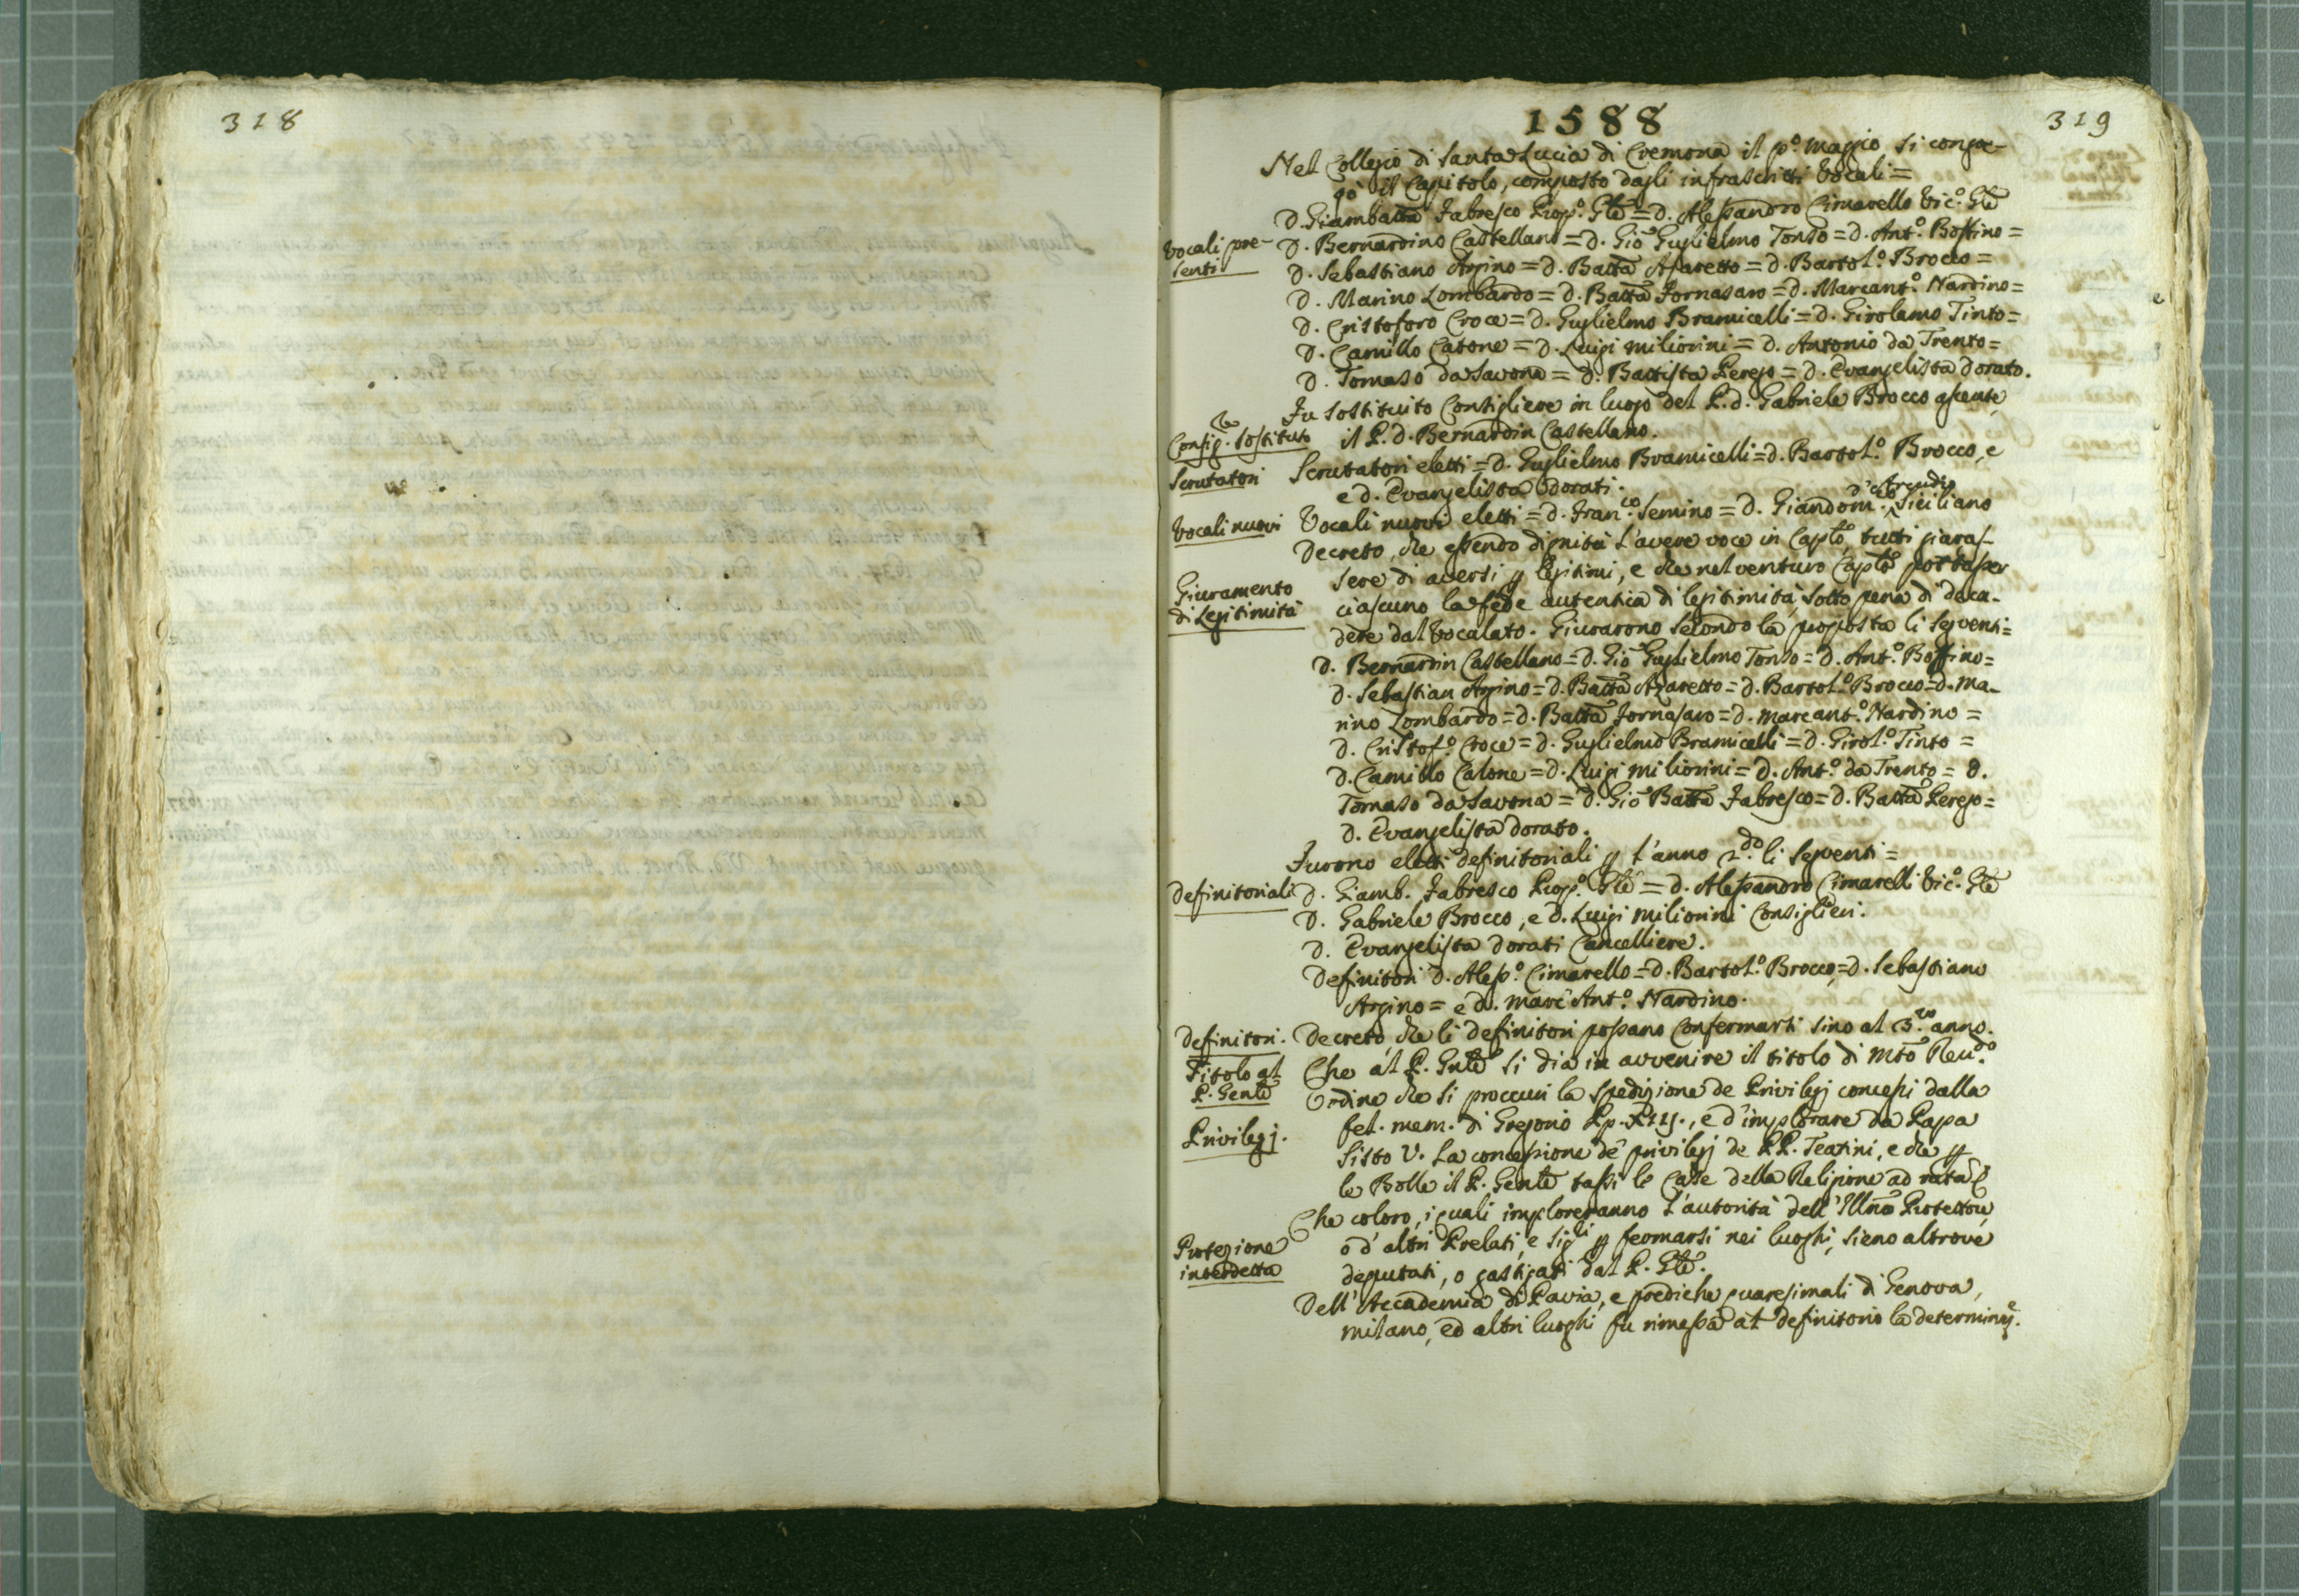 318
319
1588
Nel Collegio di Santa Lucia di Cremona il pº. Maggio si congre-
gò il Capitolo, composto dagli infrascritti Vocali =
D. Giambatta Fabresco Prop.º Gle = D. Alessandro Cimarello Vic.º Gle
Vocali pre-
senti
D. Bernardino Castellano = D. Gio Guglielmo Tonso = D. Ant.º Boffino =
D. Sebastiano Arpino = D. Batta Assaretto = D. Bartol.º Brocco =
D. Marino Lombardo = D. Batta Fornasaro = D. Marcant.º Nardino =
D. Cristoforo Croce = D. Guglielmo Bramicelli = D. Girolamo Tinto =
D. Camillo Catone = D. Luigi Miliorini = D. Antonio da Trento =
D. Tomaso da Savona = D. Battista Perego = D. Evangelista Dorato.
Consig.re sostituto
Fu sostituito Consigliere in luogo del P. D. Gabriele Brocco assente
il P. D. Bernardin Castellano.
Scrutatori
Scrutatori eletti = D. Guglielmo Bramicelli = D. Bartol.º Brocco, e
e D. Evangelista Dorati.
Vocali nuovi
Vocali nuovi eletti = D. Fran.co Semino = D. Giandom.co Siciliano
Decreto, che essendo dignità l'avere voce in Caplo, tutti giaras-
Giuramento
di Legitimità
sero di aversi p legitimi, e che nel venturo Caplo porterà
ciascuno la fede autentica di legitimità, sotto pena di deca-
dere dal Vocalato. Giurarono secondo la proposta li seguenti =
D. Bernardin Castellano = D. Gio Guglielmo Tonso = D. Ant.º Boffino =
D. Sebastian Arpino = D. Batta Azaretto = D. Bartol.º Brocco = D. Ma-
rino Lombardo = D. Batta Fornasaro = D. Marcant.º Nardino =
D. Cristof.º Croce = D. Guglielmo Bramicelli = D. Girol.º Tinto =
D. Camillo Catone = D. Luigi Miliorini = D. Ant.º da Trento = D.
Tomaso da Savona = D. Gio Batta Fabresco = D. Batta Perego =
D. Evangelista Dorato.
Furono eletti Definitoriali p l'anno 2.do li seguenti =
Definitoriali
D. Giamb. Fabresco Prop.º Gle = D. Alessandro Cimarelli Vic.º Gle
D. Gabriele Brocco, e D. Luigi Miliorini Consiglieri.
D. Evangelista Dorati Cancelliere.
Definitori D. Aless.º Cimarello = D. Bartol.º Brocco = D. Sebastiano
Arpino = e D. Marc'Ant.º Nardino.
Definitori.
Decreto, che li Definitori possano confermarsi sino al 3.zo anno.
Titolo al
P. Genle
Che al P. Gnle si dia in avvenire il titolo di Mto Reu.do
Ordine che si proccuri la spedizione de Privilegj concessi dalla
Privilegj.
fel. mem. di Gregorio Pp. XIII., e d'implorare da Papa
Sisto V. la concessione de' privilegj de PP. Teatini, e che p
le Bolle il P. Genle tassi le Case della Religione ad rata
Che coloro, i quali imploreranno l'autorità dell'Illmo Protettore,
Protezione
interdetta
o d'altri Prelati, e Sig.li p fermarsi nei luoghi, sieno altrove
deputati, o gastigati dal P. Gle.
Dell'Accademia di Pavia, e prediche quaresimali di Genova,
Milano, ed altri luoghi fu rimessa al Definitorio la determinne.